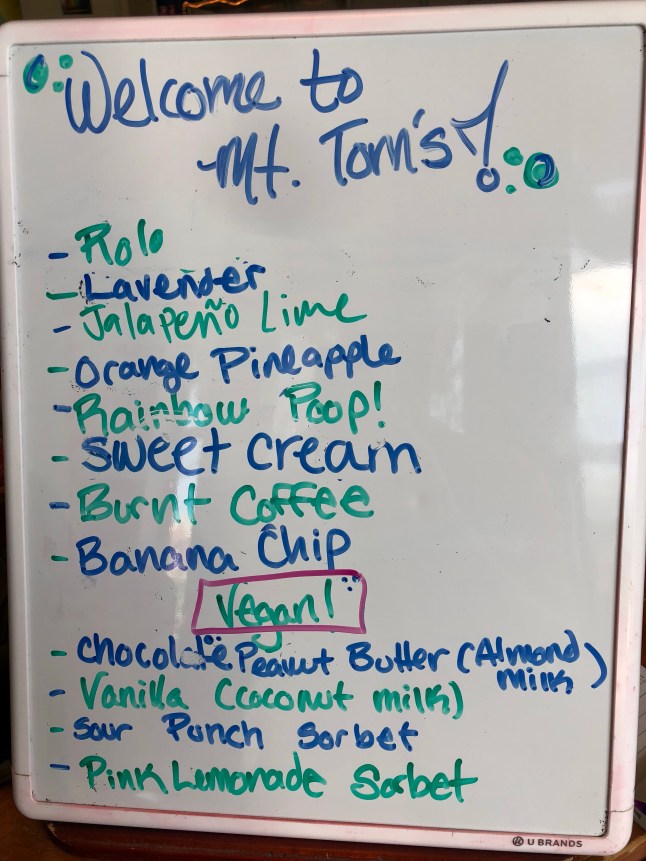 Welcome to
Mt. Tom's!
- Rolo
- Lavender
- Jalapeño Lime
- Orange Pineapple
- Rainbow Poop!
- Sweet cream
- Burnt Coffee
- Banana Chip
Vegan!
- Chocolate Peanut Butter (Almond
milk)
- Vanilla (coconut milk)
- Sour Punch Sorbet
- Pink Lemonade Sorbet
U BRANDS